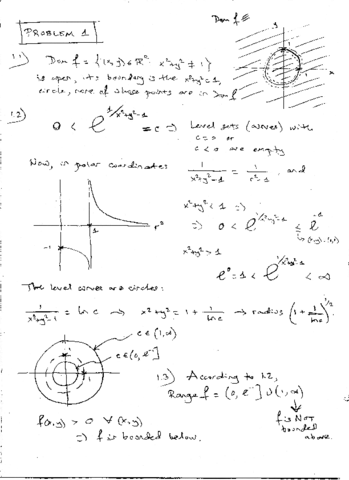 PROBLEM 1
Dom f ≡
y
x
1
1.1) Dom f = {(x,y) ∈ ℝ²: x²+y² ≠ 1}
is open, its boundary is the x²+y²=1,
circle, none of whose points are in Dom f
1.2) 0 < e^{1/x²+y²-1} = c ⇒ Level sets (curves) with
c=0 or
c<0 are empty
Now, in polar coordinates 1/(x²+y²-1) = 1/(r²-1), and
x²+y²<1 ⇒
⇒ 0 < e^{1/x²+y²-1} ≤ e^{-1}
x²+y²>1
e⁰=1 < e^{1/x²+y²-1} < ∞
-1
1
r²
The level curves are circles:
1/(x²+y²-1) = ln c ⇒ x²+y² = 1 + 1/ln c → radius (1 + 1/ln c)^{1/2}
c ∈ (1,∞)
c ∈ (0, e⁻¹]
1
1.3) According to 1.2,
Range f = (0, e⁻¹] ∪ (1,∞)
f is NOT
bounded
above.
f(x,y) > 0 ∀ (x,y)
⇒ f is bounded below.